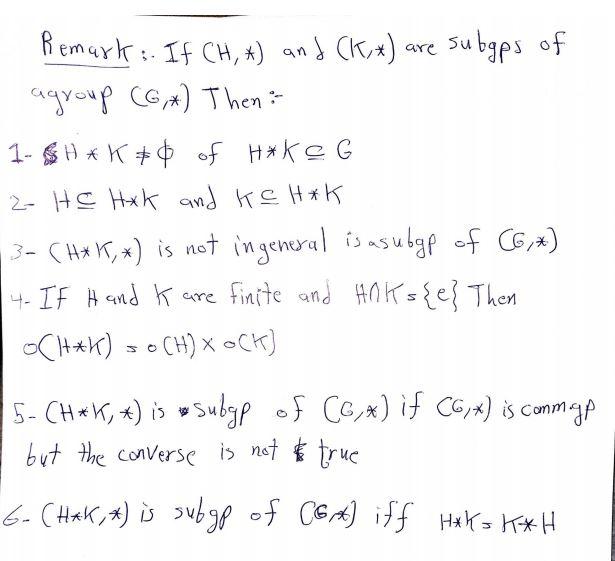 Remark :. If (H, *) and (K, *) are subgps of
agroup (G, *) Then :-
1- H * K ≠ ϕ of H*K ⊆ G
2- H ⊆ H*K and K ⊆ H*K
3- (H*K, *) is not ingeneral is asubgp of (G, *)
4- If H and K are finite and H∩K = {e} Then
o(H*K) = o(H) × o(K)
5- (H*K, *) is subgp of (G, *) if (G, *) is comm gp
but the converse is not true
6- (H*K, *) is subgp of (G, *) iff H*K = K*H